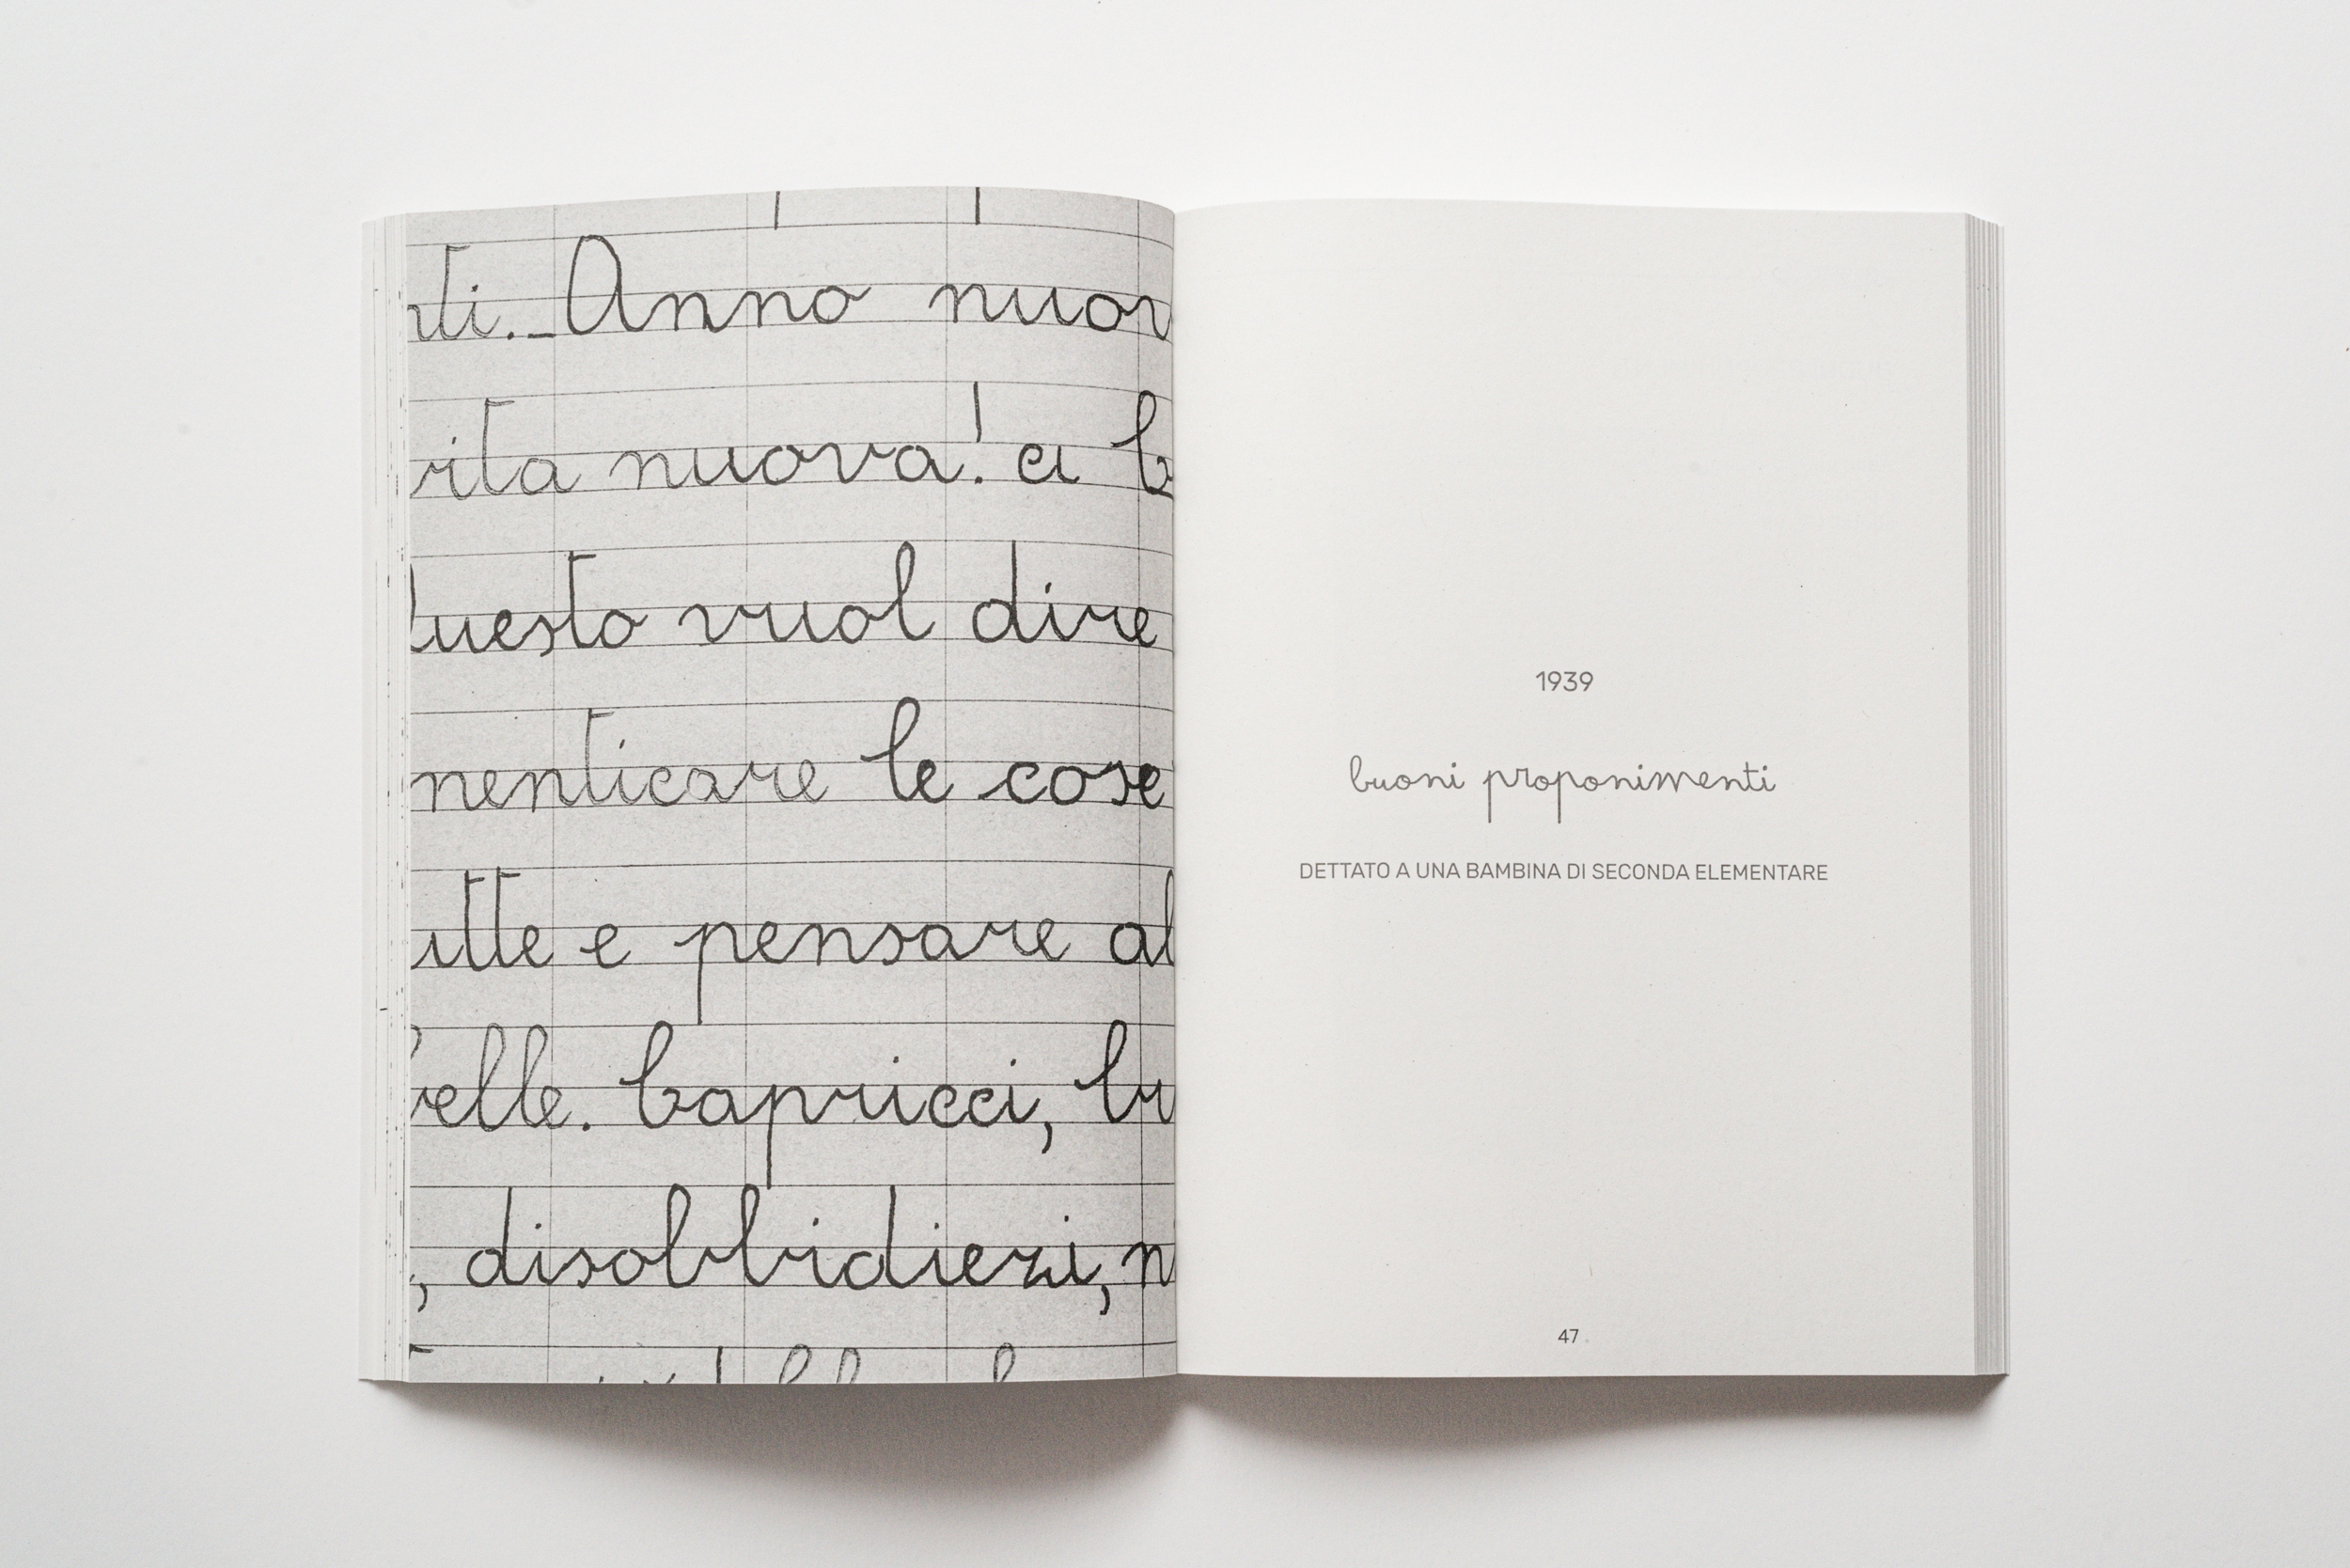 nti._Anno nuov
vita nuova! ci b
uesto vuol dire
menticare le cose
utte e pensare al
belle. Capricci, bu
, disobbidiezi, n
1939
buoni proponimenti
DETTATO A UNA BAMBINA DI SECONDA ELEMENTARE
47